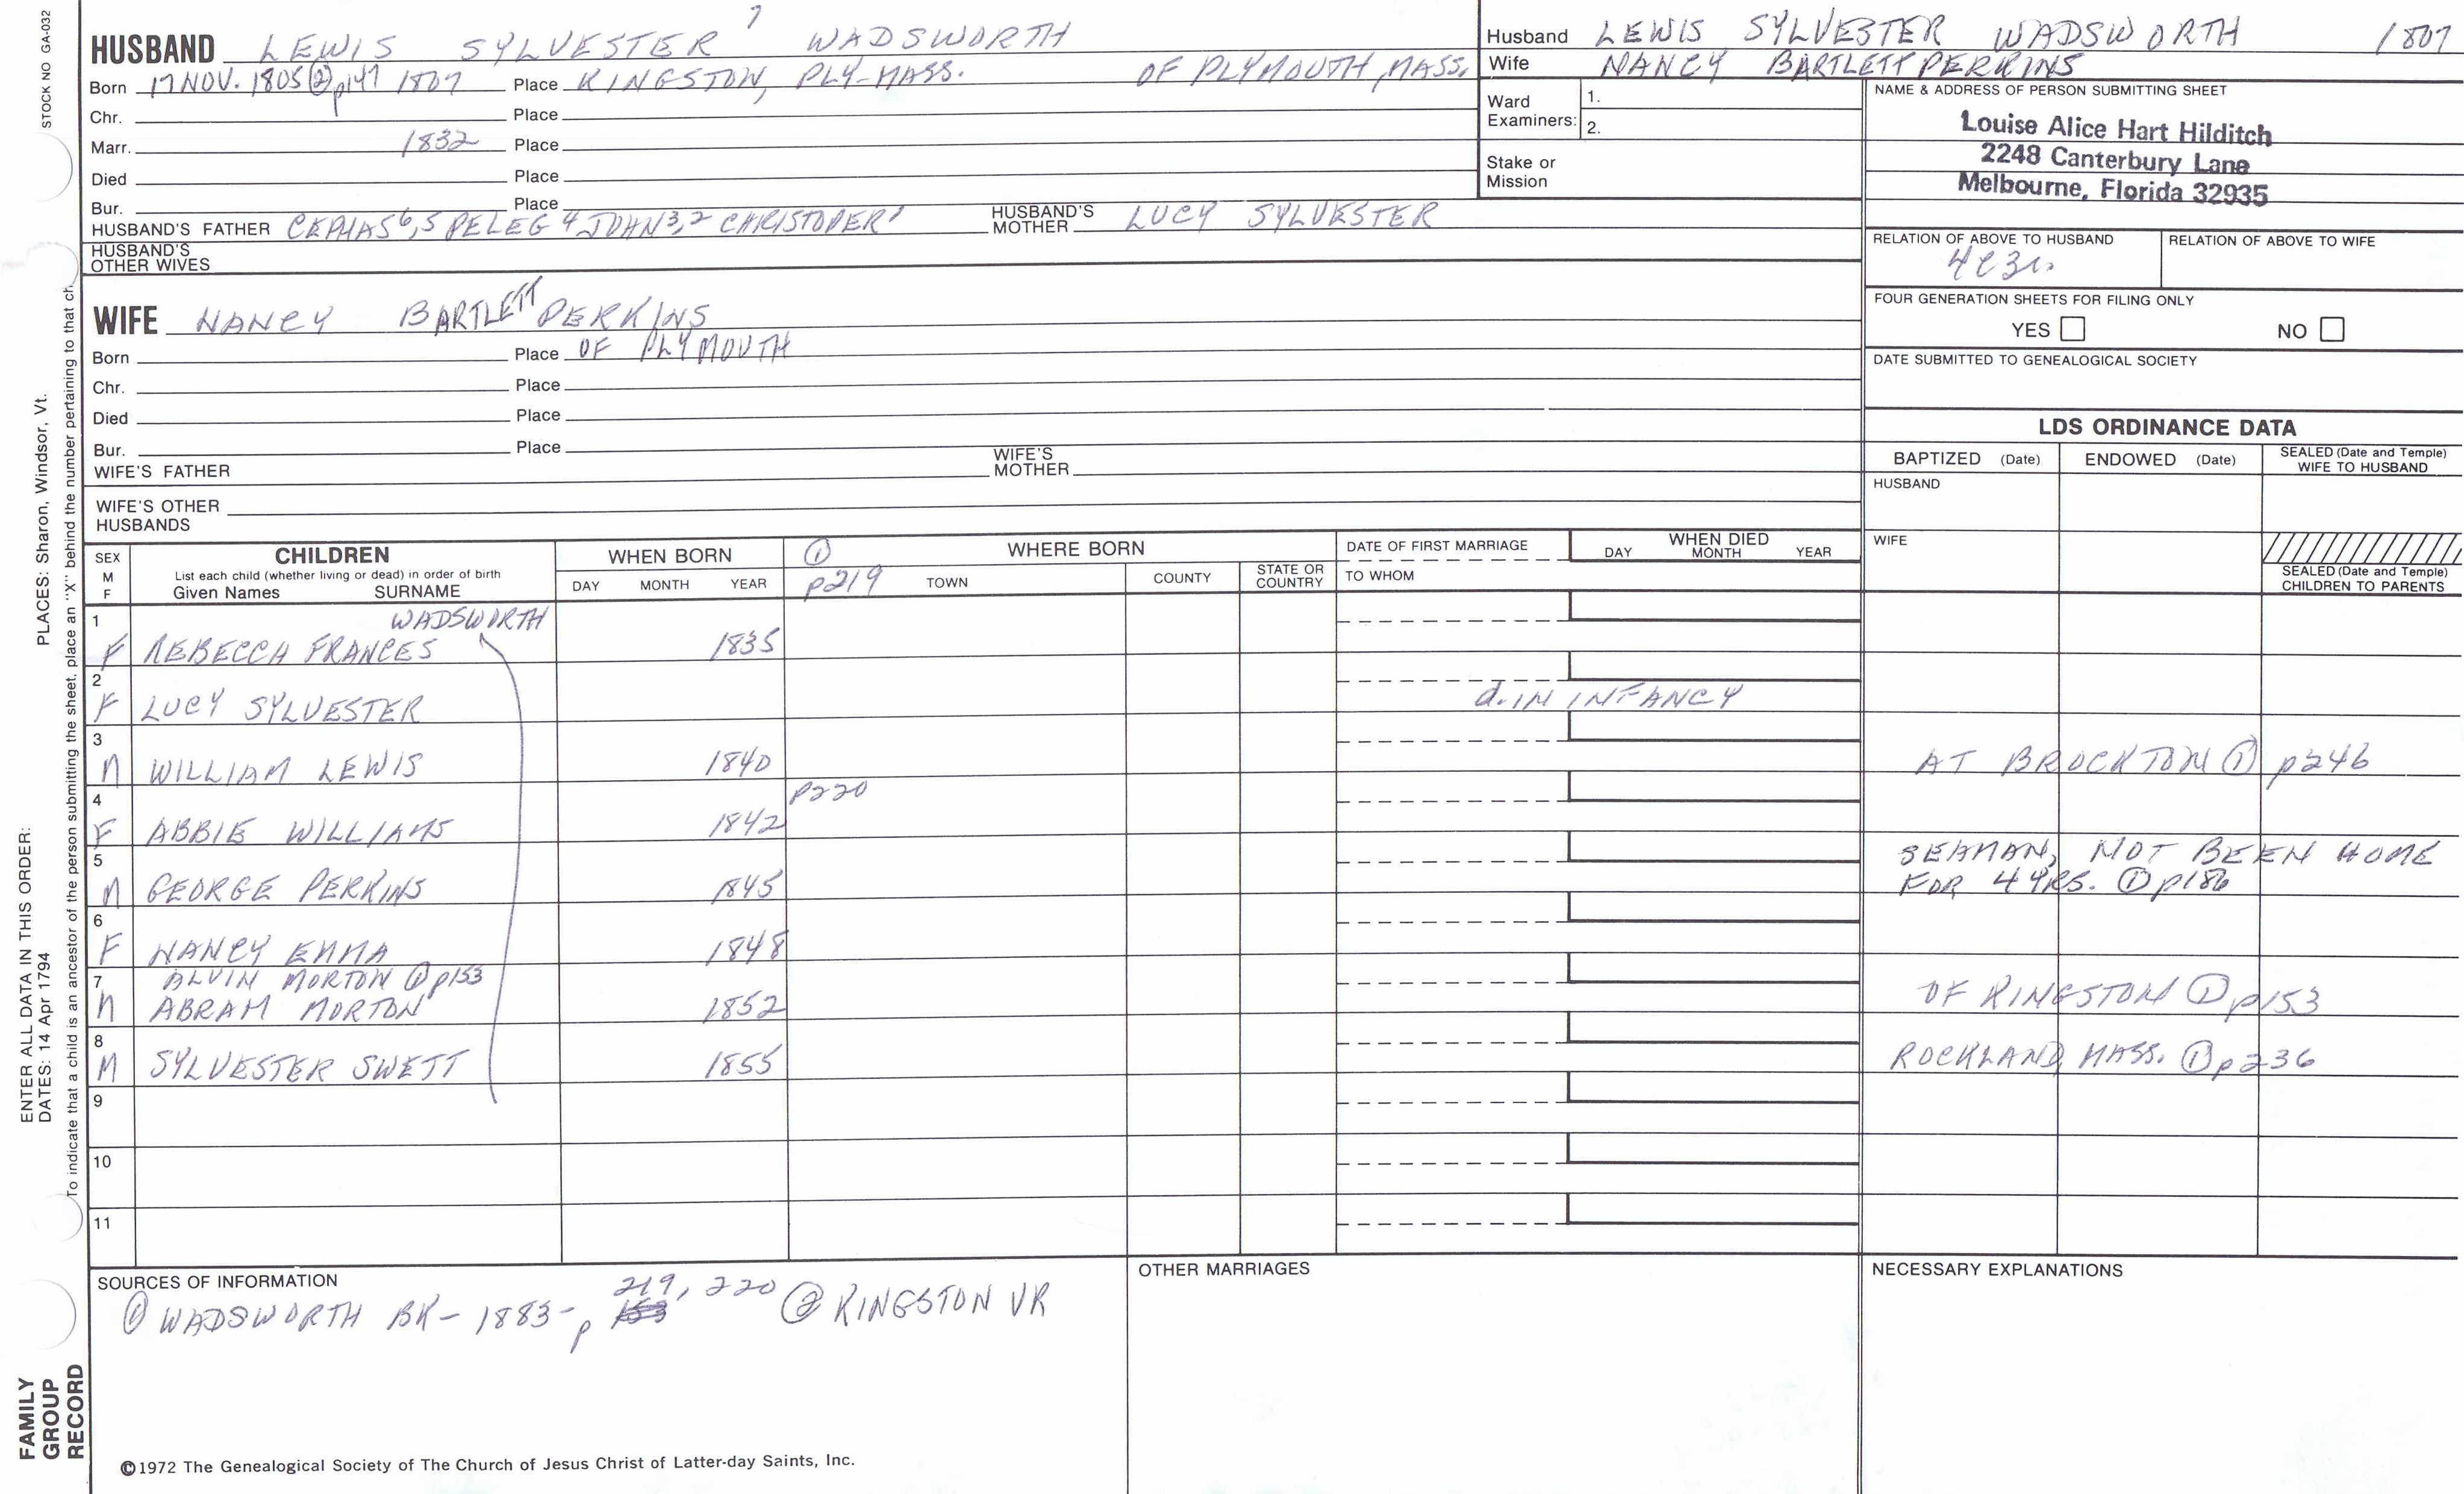 STOCK NO GA-032
HUSBAND LEWIS SYLVESTER 7 WADSWORTH
Born 17 NOV. 1805 ② p147 1807 Place KINGSTON, PLY-MASS. OF PLYMOUTH, MASS.
Chr. Place
Marr. 1832 Place
Died Place
Bur. Place
HUSBAND'S FATHER CEPHAS 6,5 PELEG 4 JOHN 3,2 CHRISTOPER 1 HUSBAND'S MOTHER LUCY SYLVESTER
HUSBAND'S OTHER WIVES
Husband LEWIS SYLVESTER WADSWORTH 1807
Wife NANCY BARTLETT PERKINS
Ward Examiners: 1.
2.
Stake or Mission
NAME & ADDRESS OF PERSON SUBMITTING SHEET
Louise Alice Hart Hilditch
2248 Canterbury Lane
Melbourne, Florida 32935
RELATION OF ABOVE TO HUSBAND RELATION OF ABOVE TO WIFE
4c3r.
FOUR GENERATION SHEETS FOR FILING ONLY
YES NO
DATE SUBMITTED TO GENEALOGICAL SOCIETY
WIFE NANCY BARTLETT PERKINS
Born Place OF PLYMOUTH
Chr. Place
Died Place
Bur. Place
WIFE'S FATHER WIFE'S MOTHER
WIFE'S OTHER HUSBANDS
LDS ORDINANCE DATA
BAPTIZED (Date) ENDOWED (Date) SEALED (Date and Temple) WIFE TO HUSBAND
HUSBAND
WIFE
SEALED (Date and Temple) CHILDREN TO PARENTS
SEX M F
CHILDREN
List each child (whether living or dead) in order of birth
Given Names SURNAME
WHEN BORN
DAY MONTH YEAR
① WHERE BORN
p219 TOWN COUNTY STATE OR COUNTRY
DATE OF FIRST MARRIAGE
TO WHOM
WHEN DIED
DAY MONTH YEAR
WADSWORTH
1 F REBECCA FRANCES 1835
2 F LUCY SYLVESTER d. IN INFANCY
3 M WILLIAM LEWIS 1840 AT BROCKTON ① p246
p220
4 F ABBIE WILLIAMS 1842
5 M GEORGE PERKINS 1845 SEAMAN, NOT BEEN HOME
FOR 4 YRS. ① p186
6 F NANCY EMMA 1848
ALVIN MORTON ① p153
7 M ABRAM MORTON 1852 OF KINGSTON ① p153
8 M SYLVESTER SWETT 1855 ROCKLAND, MASS. ① p236
9
10
11
SOURCES OF INFORMATION
① WADSWORTH BK - 1883 - p 153 219, 220 ② KINGSTON VR
OTHER MARRIAGES
NECESSARY EXPLANATIONS
©1972 The Genealogical Society of The Church of Jesus Christ of Latter-day Saints, Inc.
PLACES: Sharon, Windsor, Vt.
To indicate that a child is an ancestor of the person submitting the sheet, place an "X" behind the number pertaining to that ch
ENTER ALL DATA IN THIS ORDER:
DATES: 14 Apr 1794
FAMILY
GROUP
RECORD